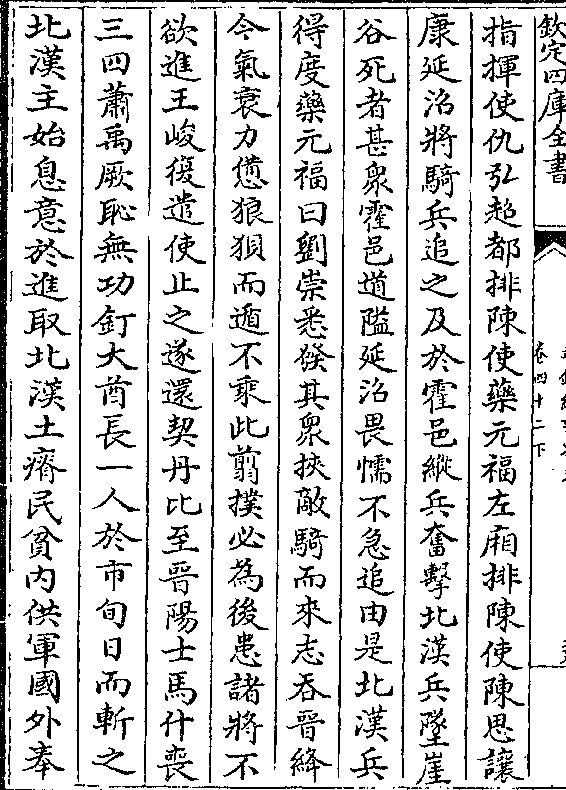 欽定四庫全書
卷四十二下
指揮使仇弘超都排陳使藥元福左廂排陳使陳思讓
康延沼將騎兵追之及於霍邑縱兵奮擊北漢兵墜崖
谷死者甚衆霍邑道隘延沼畏懦不急追由是北漢兵
得度藥元福曰劉崇悉發其衆挾敵騎而來志吞晉絳
今氣衰力憊狼狽而遁不乘此翦撲必為後患諸將不
欲進王峻復遣使止之遂還契丹比至晉陽士馬什喪
三四蕭禹厥恥無功釘大酋長一人於市旬日而斬之
北漢主始息意於進取北漢土瘠民貧内供軍國外奉